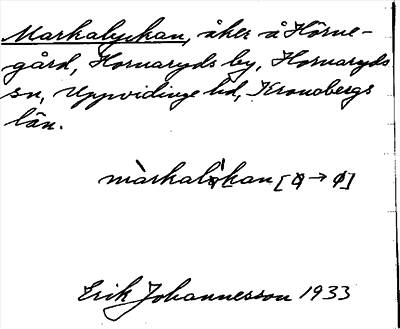 Markalyckan, åker å Hörne-
gård, Hornaryds by, Hornaryds
sn, Uppvidinge hd, Kronobergs
län.
Erik Johannesson 1933